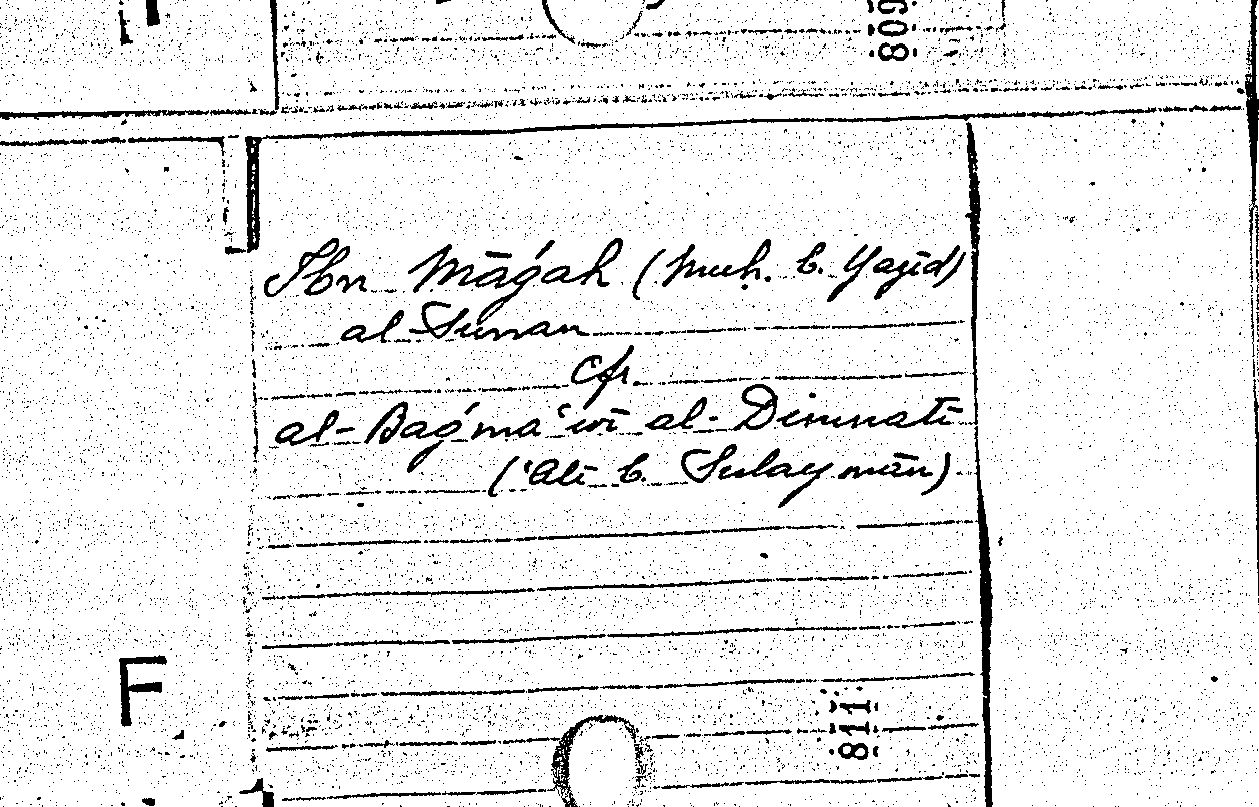 809
Ibn Māǵah (Muḥ. b. Yazīd)
al-Sunan
Cfr.
al-Baǵma'wī al-Dimnatī
('Alī b. Sulaymān)
F
811